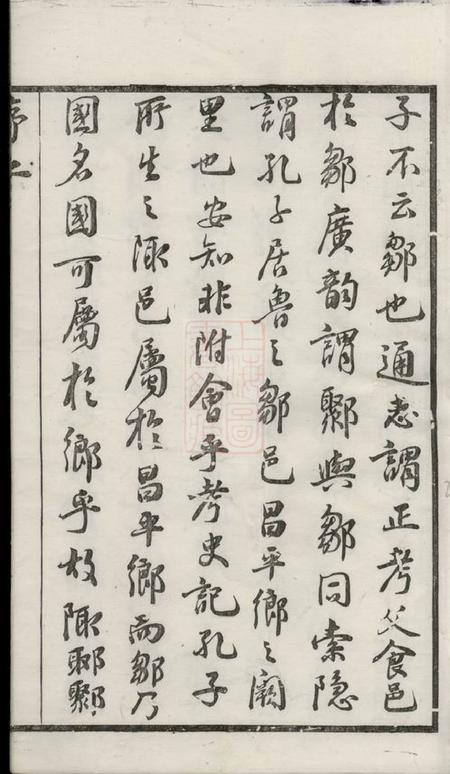 子不云鄒也通志謂正考父食邑
於鄒廣韵謂鄹與鄒同索隐
謂孔子居魯之鄒邑昌平鄉之闕
里也安知非附會乎考史記孔子
所生之陬邑屬於昌平鄉而鄒乃
國名國可屬於鄉乎故陬郰鄹
序二